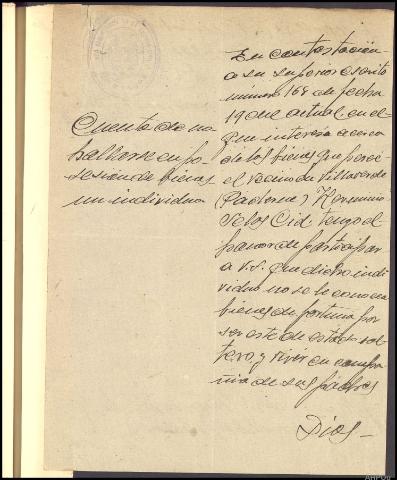 Cuenta de no
hallarse en po-
sesión de bienes
un individuo
En contestación
a su superior escrito
número 168 de fecha
19 del actual, en el
que interesa acerca
de los bienes que posee
el vecino de Villaverde
(Paderne) Herminio
de los Cid, tengo el
honor de participar
a V.S. que dicho indi-
viduo no se le conocen
bienes de fortuna por
ser este de estado sol-
tero, y vivir en compa-
ñía de sus padres
Dios –